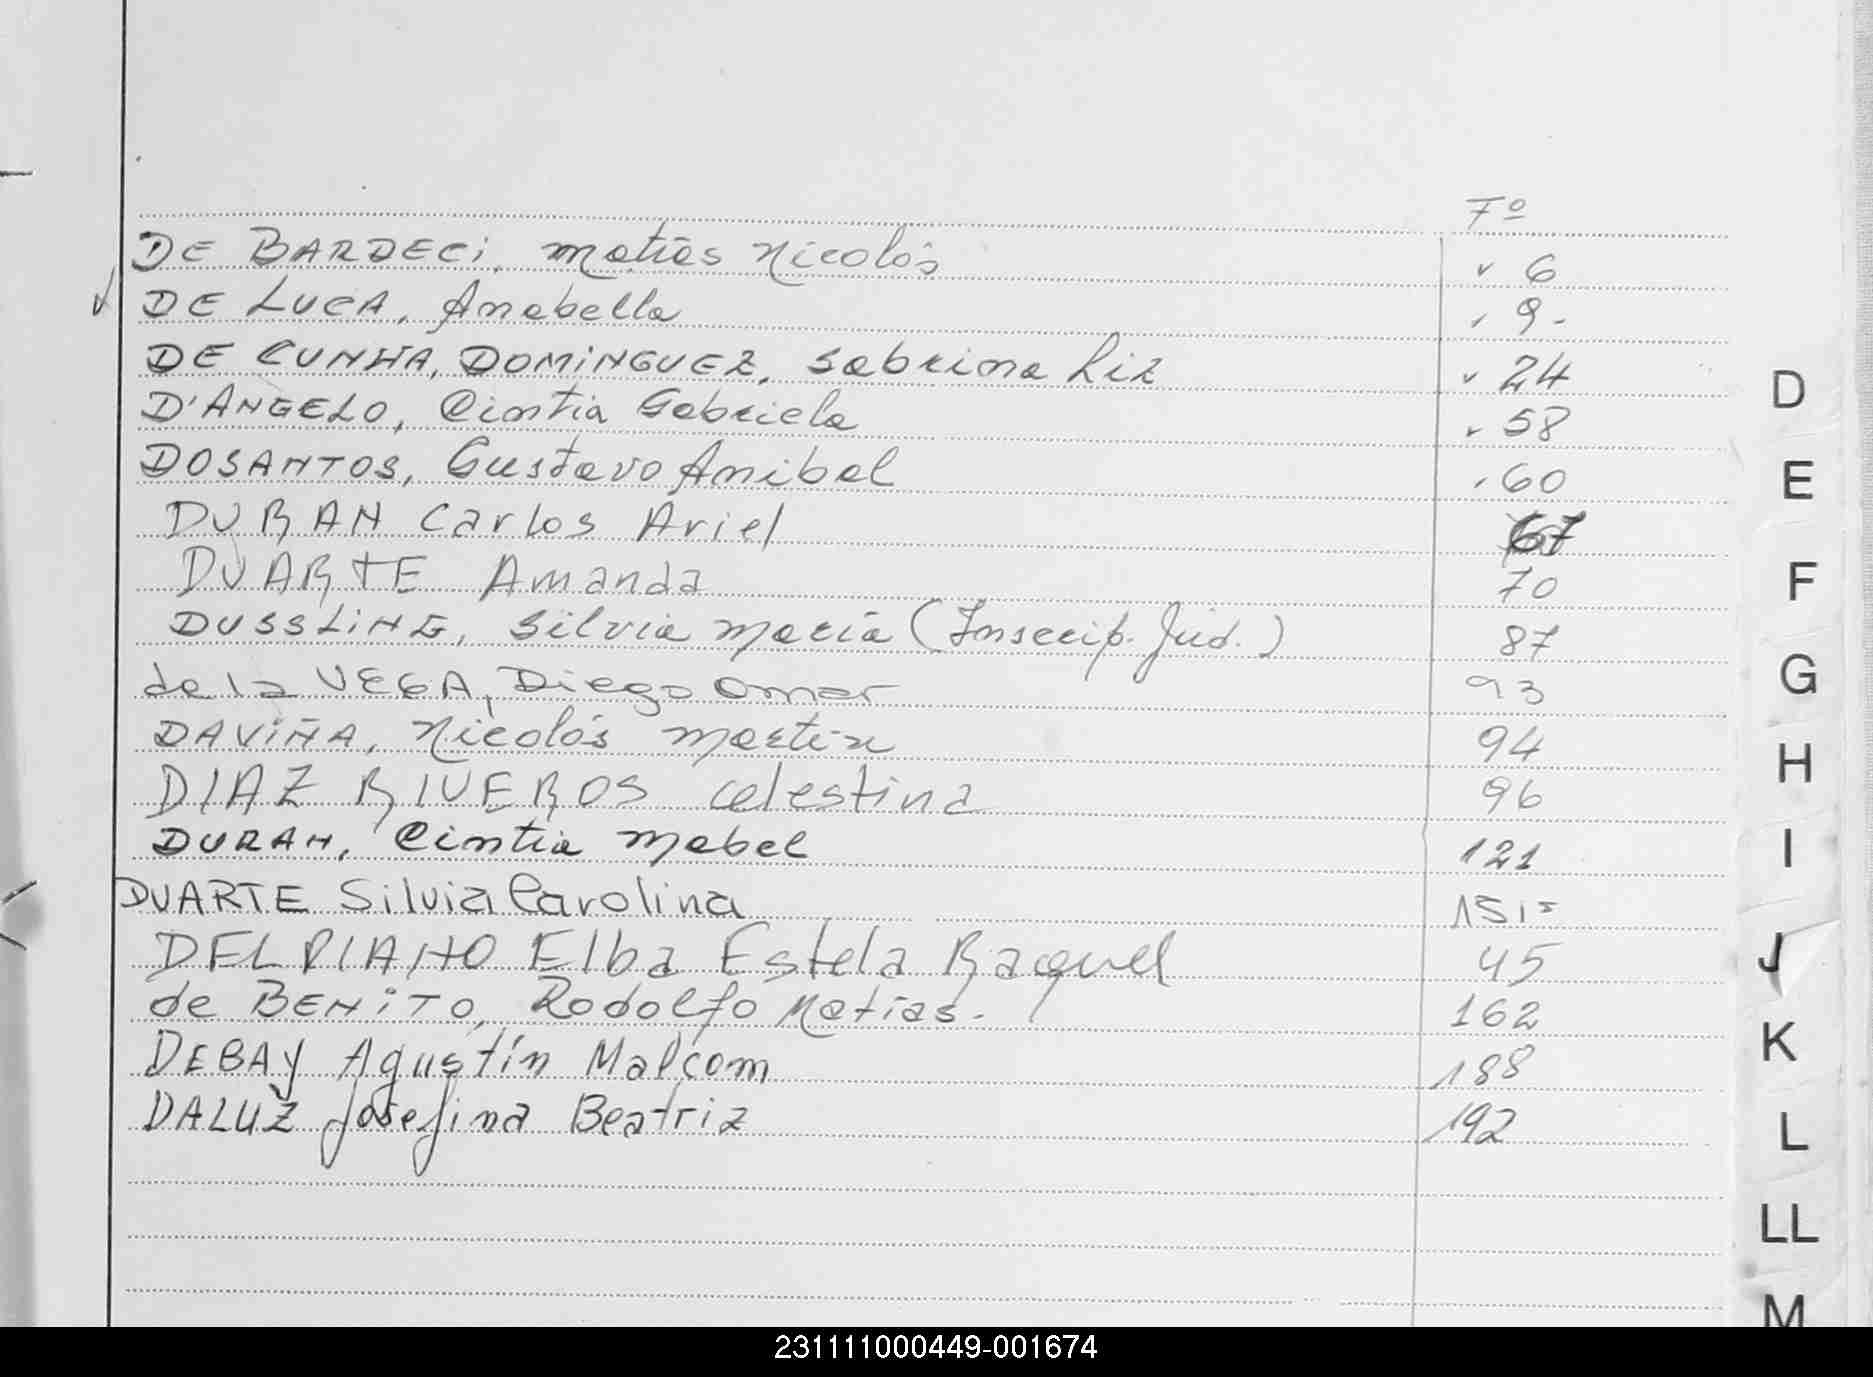 Fº
DE BARDECi, Matías Nicolás ✓ 6
✓ DE LUCA, Anabella ✓ 9-
DE CUNHA, DOMiNGUEZ, Sabrina Liz ✓ 24
D'ANGELO, Cintia Gabriela ✓ 58
DOSANTOS, Gustavo Anibal ✓ 60
DURAN Carlos Ariel 67
DUARTE Amanda 70
DUSSLiNG, Silvia María (Inscrip. Jud.) 87
de la VEGA, Diego Omar 93
DAViÑA, Nicolás Martín 94
DIAZ RIVEROS Celestina 96
DURAN, Cintia Mabel 121
DUARTE Silvia Carolina 151=
DELPIANO Elba Estela Raquel 45
de BENiTO, Rodolfo Matías. 162
DEBAY Agustín Malcom 188
DALUZ Josefina Beatriz 192
D
E
F
G
H
I
J
K
L
LL
M
231111000449-001674